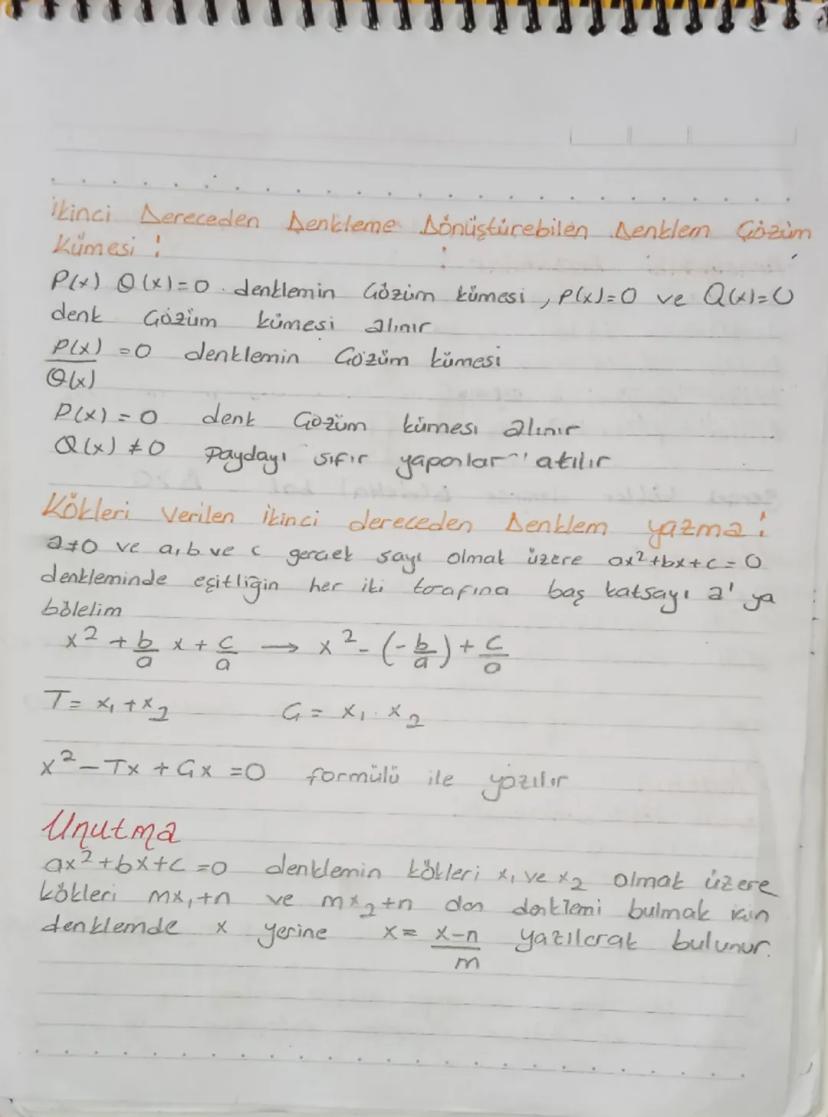 İkinci Dereceden Denkleme Dönüştürebilen Denklem Çözüm
Kümesi :
P(x) Q(x)=0 denklemin Çözüm kümesi, P(x)=0 ve Q(x)=0
denk Çözüm kümesi alınır
P(x)/Q(x) =0 denklemin Çözüm kümesi
P(x)=0 denk Çözüm kümesi alınır
Q(x)≠0 Paydayı sıfır yapanlar atılır
Kökleri Verilen ikinci dereceden Denklem yazma :
a≠0 ve a,b ve c gerçek sayı olmak üzere ax²+bx+c=0
denkleminde eşitliğin her iki tarafına baş katsayı a' ya
bölelim
x² + b/a x + c/a → x² - (-b/a) + c/a
T= x₁+x₂ Ç= x₁.x₂
x²-Tx+Çx=0 formülü ile yazılır
Unutma
ax²+bx+c=0 denklemin kökleri x₁ ve x₂ olmak üzere
kökleri mx₁+n ve mx₂+n dan denklemi bulmak için
denklemde x yerine x= x-n/m yazılarak bulunur.